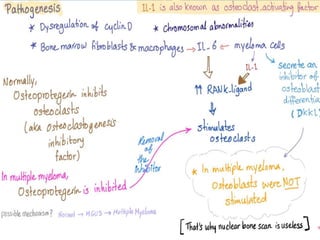 Pathogenesis
IL-1 is also known as osteoclast activating factor
* Dysregulation of cyclin D
* chromosomal abnormalities
* Bone marrow fibroblasts & macrophages → IL-6 ← myeloma cells
IL-1
secrete an
inhibitor of
osteoblast
differentia
( DKK1
↑↑ RANK-ligand
stimulates
osteoclasts
Normally,
Osteoprotegerin inhibits
osteoclasts
(aka Osteoclastogenesis
inhibitory
factor)
Removal
of
the
inhibitor
In multiple myeloma,
Osteoprotegerin is inhibited
possible mechanism? Normal → MGUS → Multiple Myeloma
* In multiple myeloma,
Osteoblasts were NOT
stimulated
[That's why nuclear bone scan is useless]